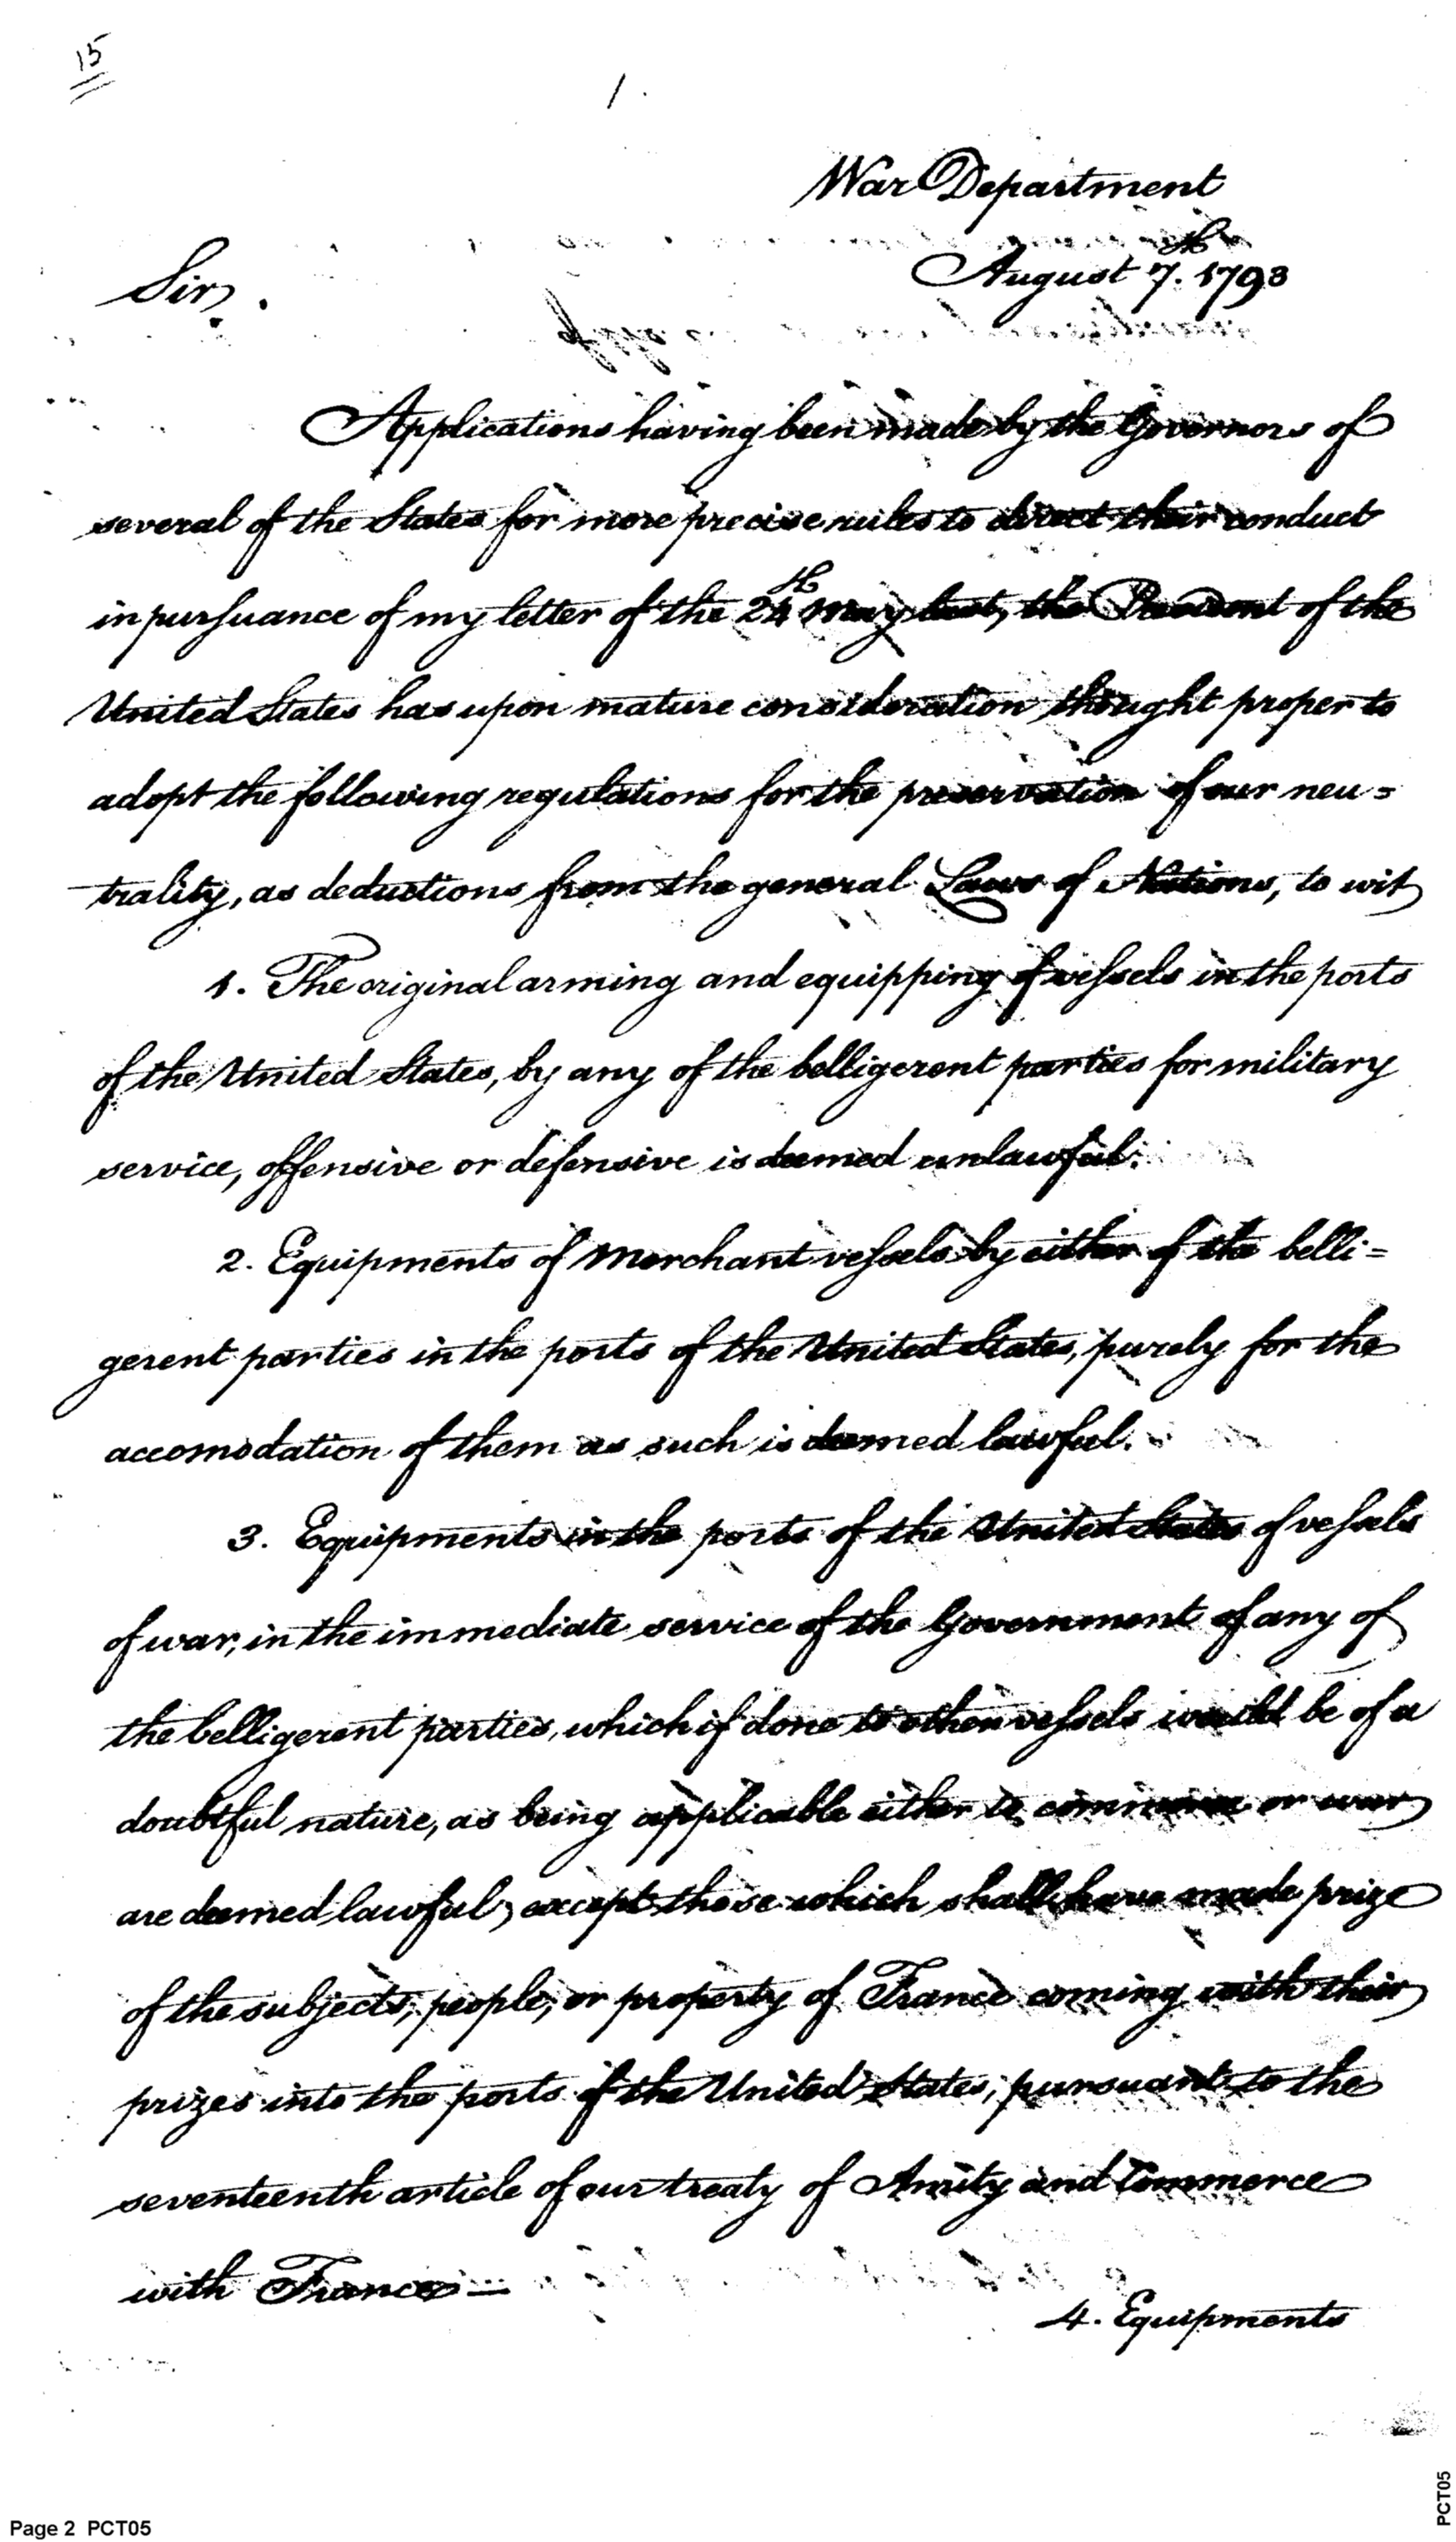 15
1.
War Department
August 7.th 1793
Sir.
Applications having been made by the Governors of
several of the States for more precise rules to direct their conduct
in pursuance of my letter of the 24th May last, the President of the
United States has upon mature consideration thought proper to
adopt the following regulations for the preservation of our neu=
trality, as deductions from the general Laws of Nations, to wit
1. The original arming and equipping of vessels in the ports
of the United States, by any of the belligerent parties for military
service, offensive or defensive is deemed unlawful.
2. Equipments of Merchant vessels by either of the belli=
gerent parties in the ports of the United States, purely for the
accomodation of them as such is deemed lawful.
3. Equipments in the ports of the United States of vessels
of war, in the immediate service of the Government of any of
the belligerent parties, which if done to other vessels would be of a
doubtful nature, as being applicable either to commerce or war
are deemed lawful, except those which shall have made prize
of the subjects, people, or property of France coming with their
prizes into the ports of the United States, pursuant to the
seventeenth article of our treaty of Amity and Commerce
with France—
4. Equipments
Page 2 PCT05
PCT05